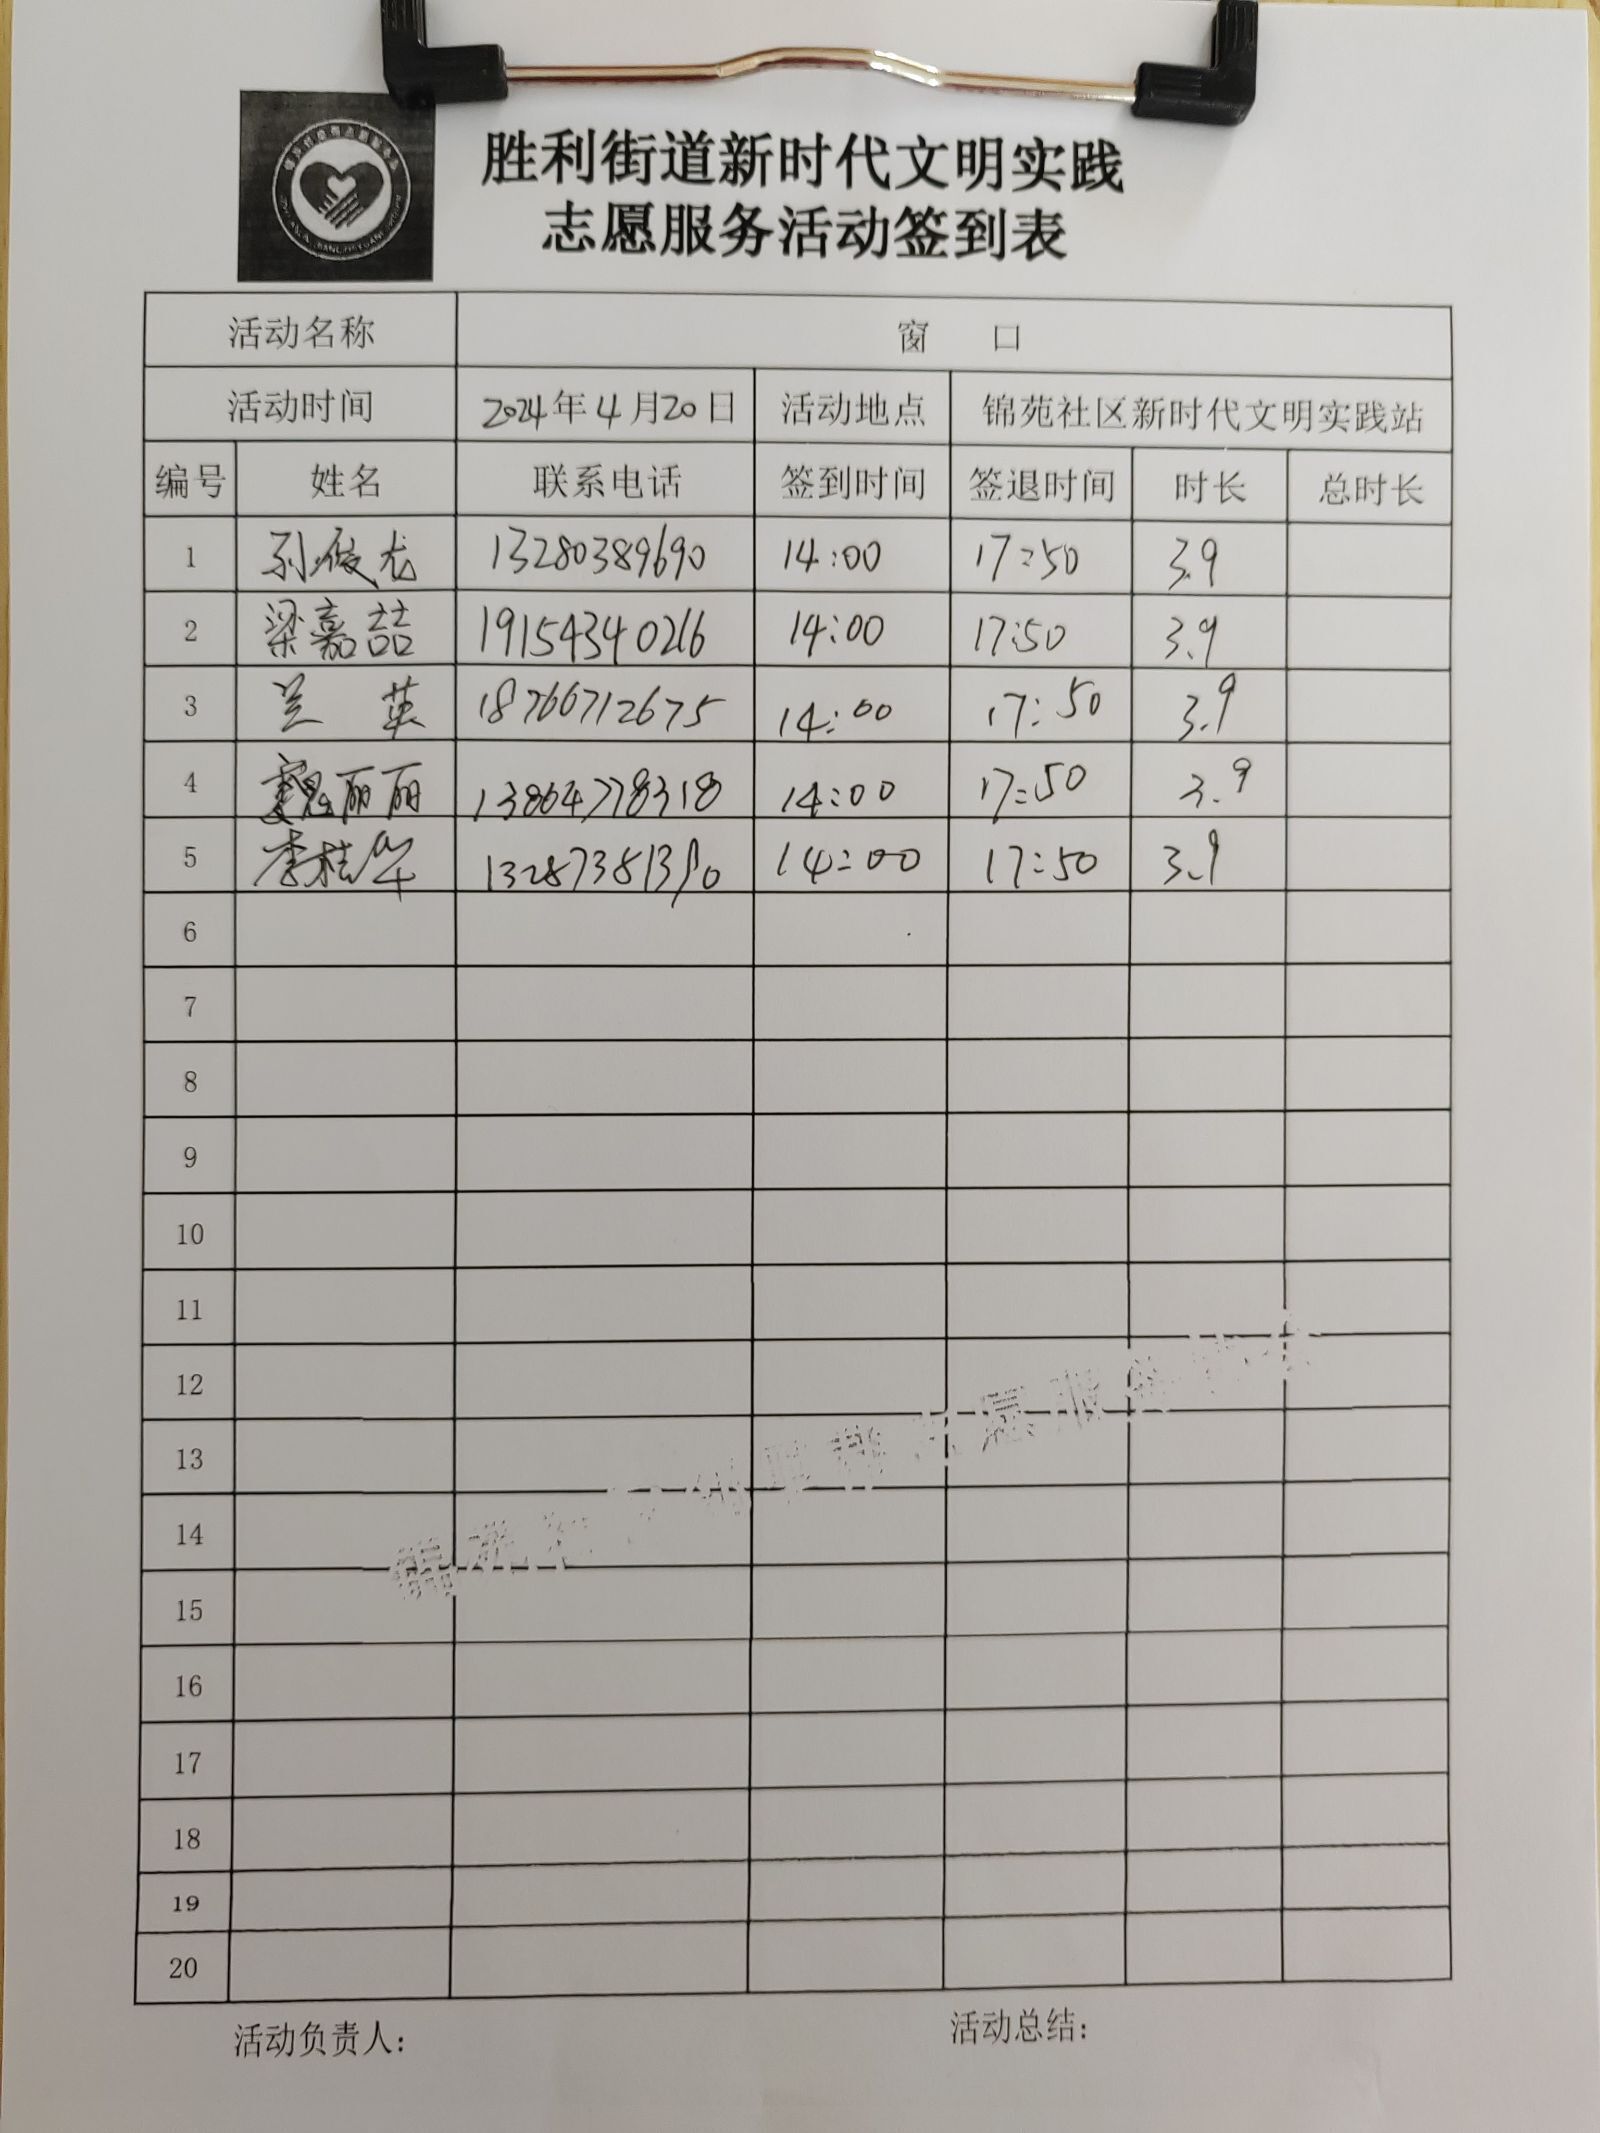 胜利街道新时代文明实践
志愿服务活动签到表
活动名称 窗 口
活动时间 2024年4月20日 活动地点 锦苑社区新时代文明实践站
编号 姓名 联系电话 签到时间 签退时间 时长 总时长
1 孙俊龙 13280389690 14:00 17:50 3.9
2 梁嘉喆 19154340216 14:00 17:50 3.9
3 兰 英 18766712675 14:00 17:50 3.9
4 魏丽丽 13864778318 14:00 17:50 3.9
5 李桂华 14:00 17:50 3.9
6
7
8
9
10
11
12
13
14
15
16
17
18
19
20
活动负责人:
活动总结: